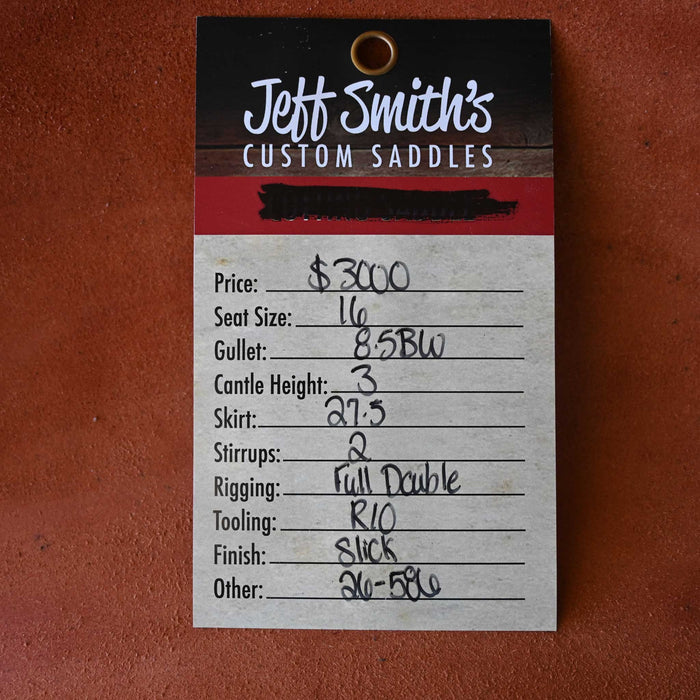 Jeff Smith's
CUSTOM SADDLES
Price: $3000
Seat Size: 16
Gullet: 8.5BW
Cantle Height: 3
Skirt: 27.5
Stirrups: 2
Rigging: Full Double
Tooling: R10
Finish: Slick
Other: 26-586